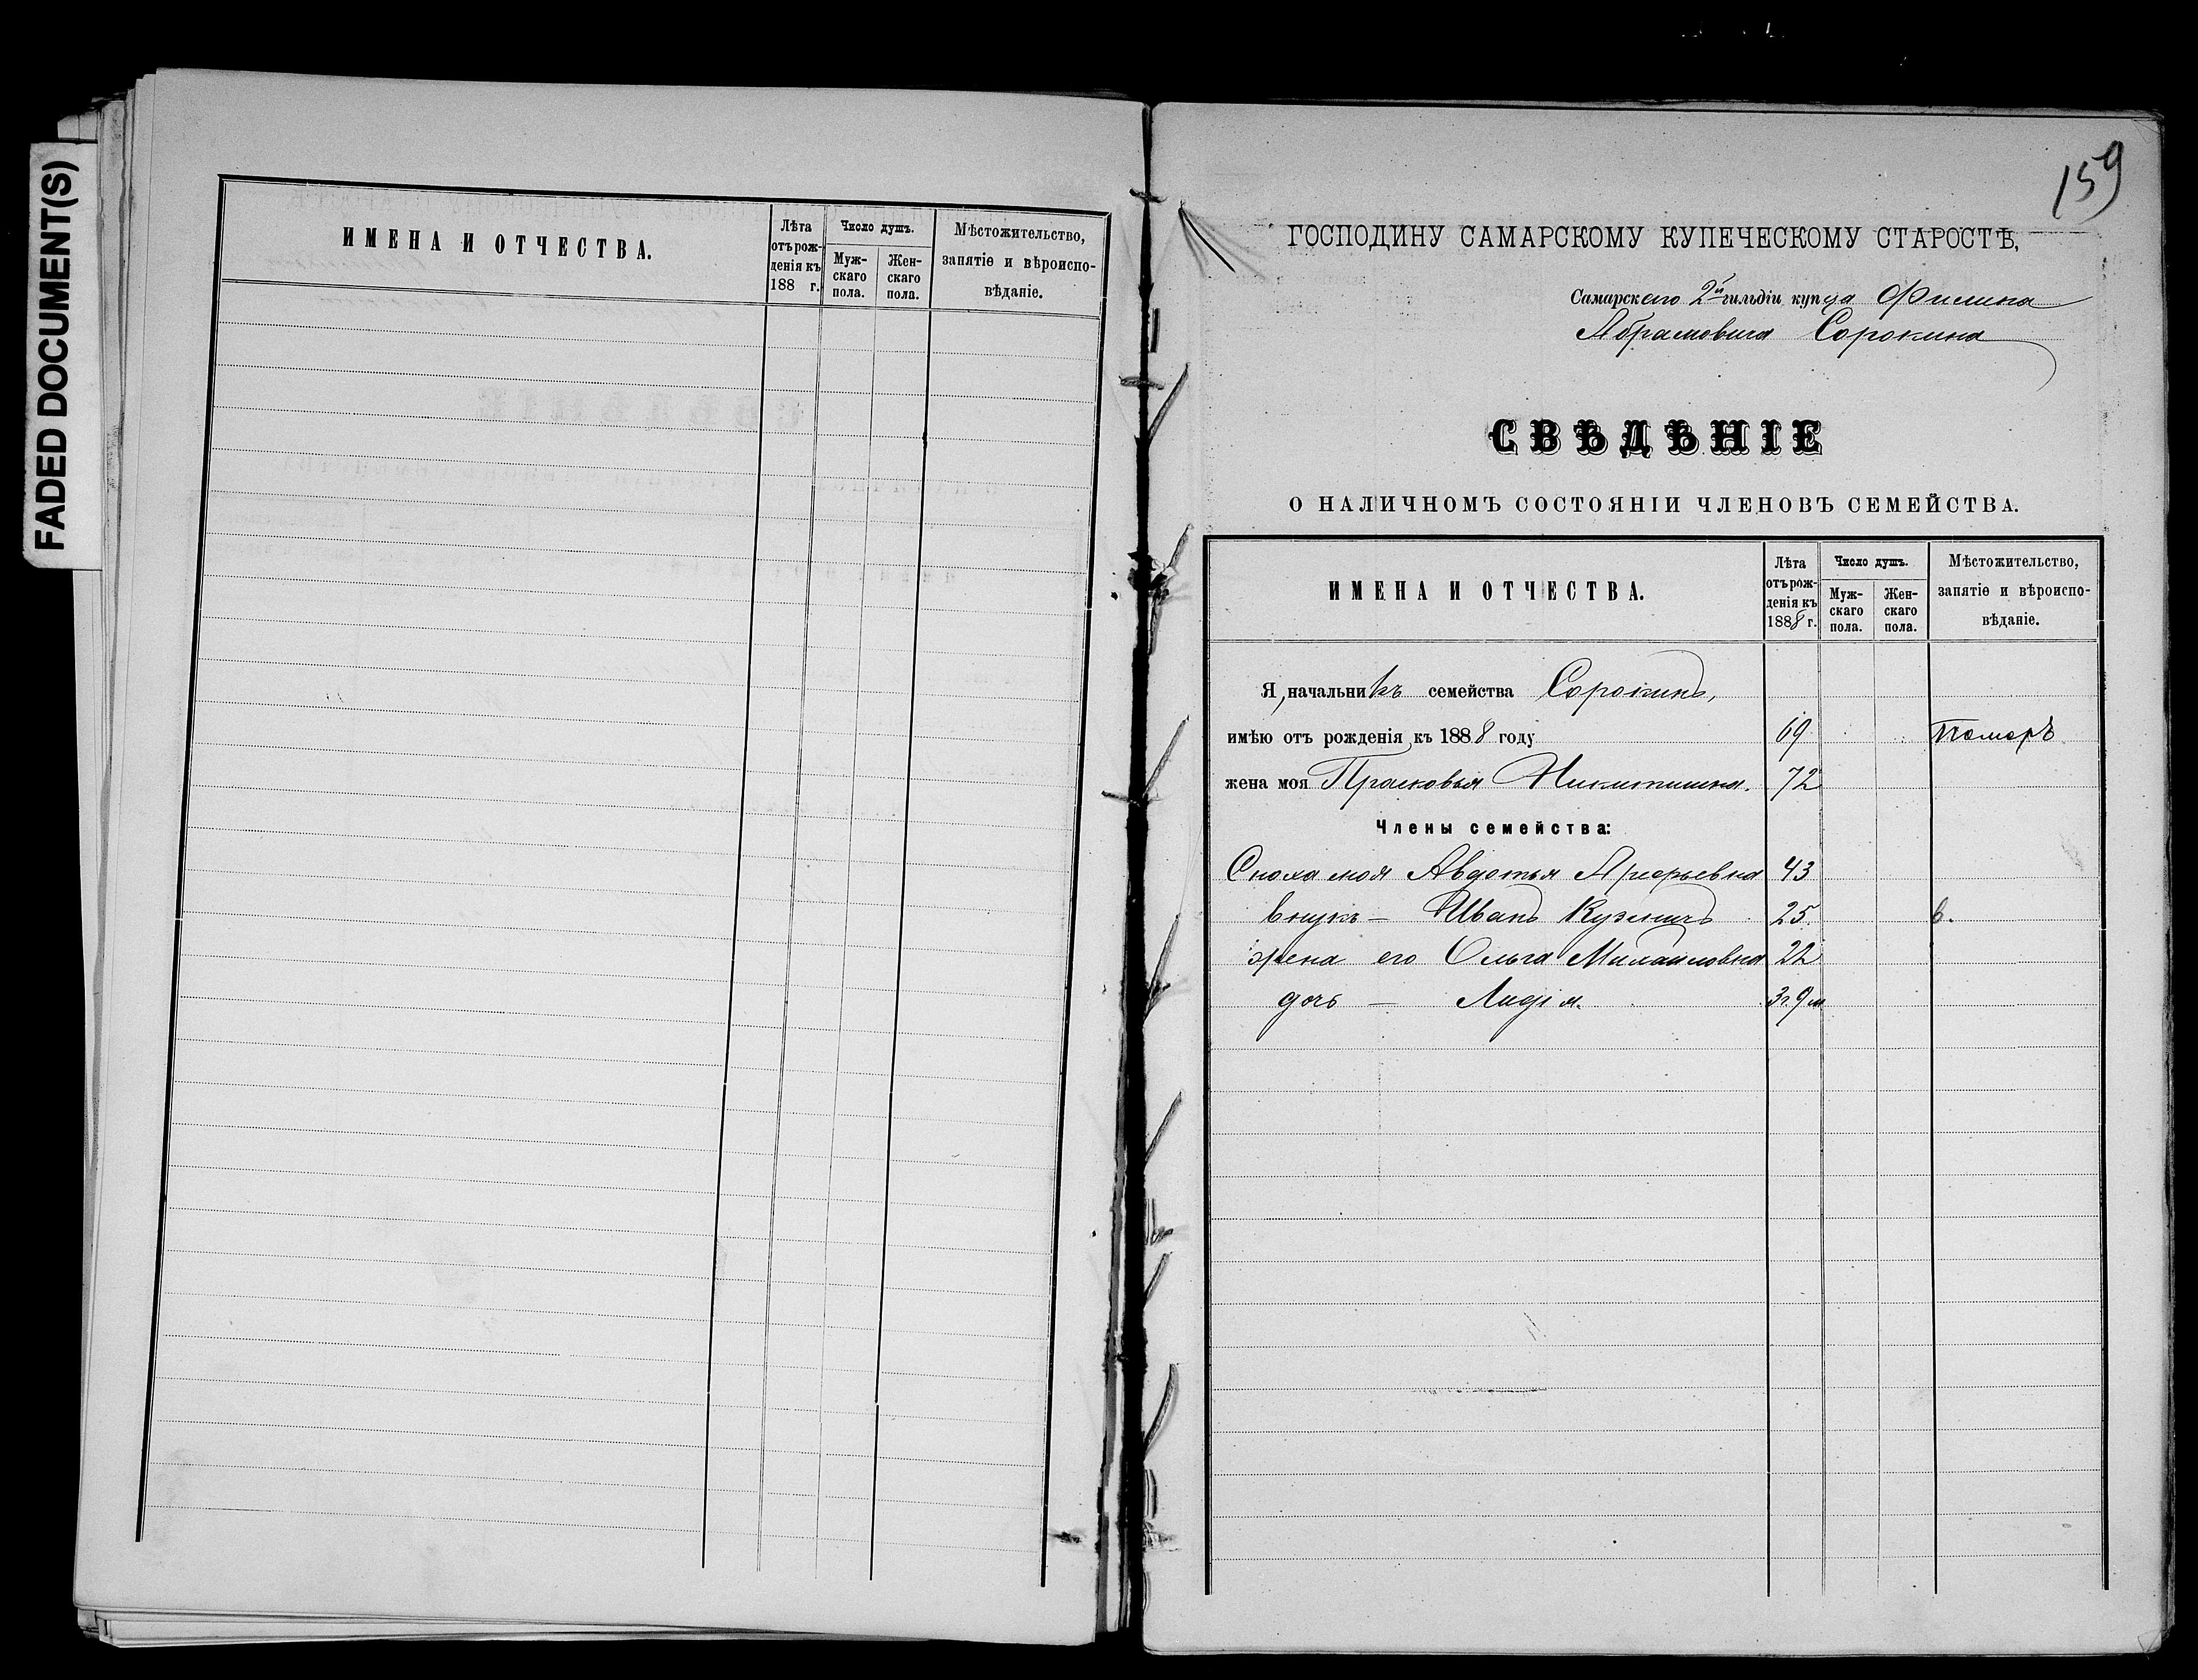 FADED DOCUMENT(S)
ИМЕНА И ОТЧЕСТВА.
Лѣта отъ рожденія къ 188 г.
Число душъ.
Мужскаго пола.
Женскаго пола.
Мѣстожительство, занятіе и вѣроисповѣданіе.
159
ГОСПОДИНУ САМАРСКОМУ КУПЕЧЕСКОМУ СТАРОСТѢ,
Самарскаго 2й гильдіи купца Филипа
Абрамовича Сорокина
СВѢДѢНІЕ
О НАЛИЧНОМЪ СОСТОЯНІИ ЧЛЕНОВЪ СЕМЕЙСТВА.
ИМЕНА И ОТЧЕСТВА.
Лѣта отъ рожденія къ 1888 г.
Число душъ.
Мужскаго пола.
Женскаго пола.
Мѣстожительство, занятіе и вѣроисповѣданіе.
Я, начальникъ семейства Сорокинъ,
имѣю отъ рожденія къ 1888 году 69
жена моя Прасковья Никитишна. 72
Члены семейства:
Сноха моя Авдотья 43
внукъ – Иванъ Кузмичъ 25 в.
жена его Ольга Михайловна 22
дочь – Лидія. 3 г. 9 м